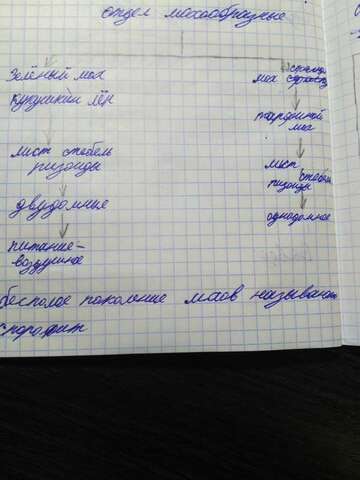 отдел мохообразные
Зелёный мох
кукушкин лён
лист стебель
ризоиды
двудомные
питание-
воздушное
мох
торфяной
мох
лист стебель
ризоиды
однодомное
бесполое поколение мхов называют
спорофит